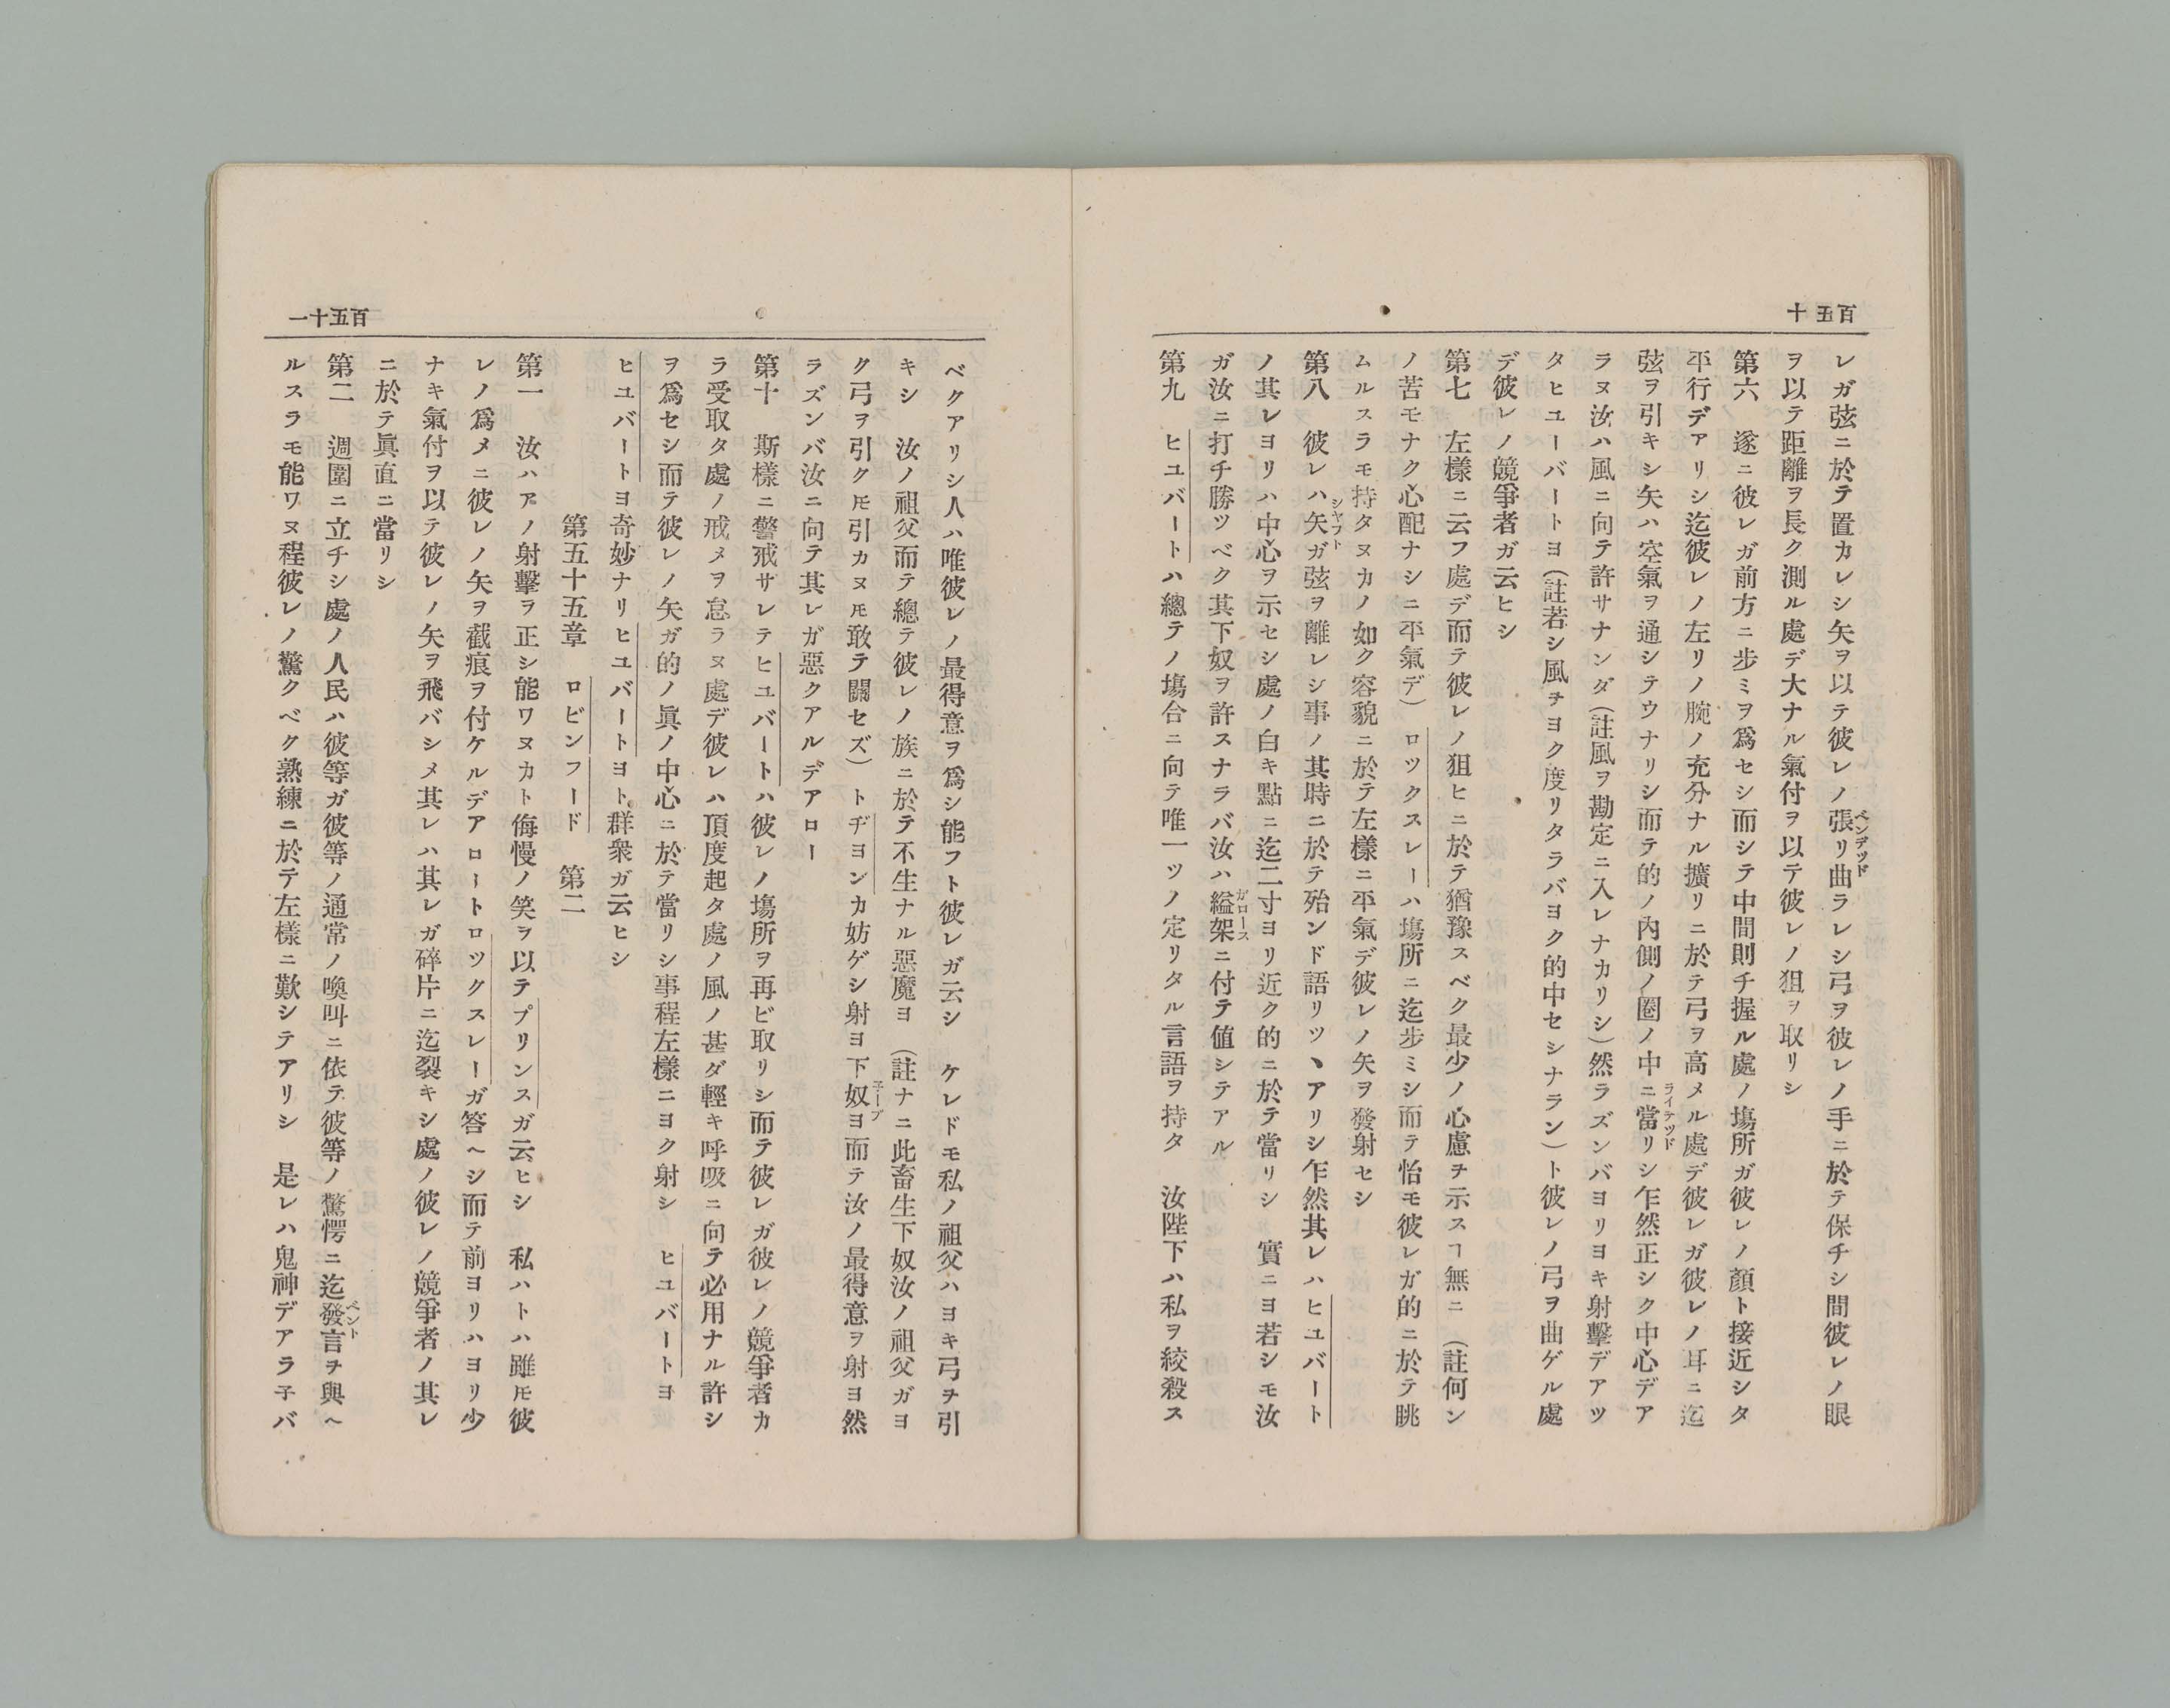 百五十
レガ弦ニ於テ置カレシ矢ヲ以テ彼レノ張リ曲ラレシ弓ヲ彼レノ手ニ於テ保チシ間彼レノ眼
ベンデッド
ヲ以テ距離ヲ長ク測ル處デ大ナル氣付ヲ以テ彼レノ狙ヲ取リシ
第六　遂ニ彼レガ前方ニ歩ミヲ爲セシ而シテ中間則チ握ル處ノ塲所ガ彼レノ顏ト接近シタ
平行デアリシ迄彼レノ左リノ腕ノ充分ナル擴リニ於テ弓ヲ高メル處デ彼レガ彼レノ耳ニ迄
弦ヲ引キシ矢ハ空氣ヲ通シテウナリシ而テ的ノ內側ノ圈ノ中ニ當リシ乍然正シク中心デア
ライテッド
ラヌ汝ハ風ニ向テ許サナンダ（註風ヲ勘定ニ入レナカリシ）然ラズンバヨリヨキ射擊デアツ
タヒユーバートヨ（註若シ風ヲヨク度リタラバヨク的中セシナラン）ト彼レノ弓ヲ曲ゲル處
デ彼レノ競爭者ガ云ヒシ
第七　左樣ニ云フ處デ而テ彼レノ狙ヒニ於テ猶豫スベク最少ノ心慮ヲ示スヿ無ニ（註何ン
ノ苦モナク心配ナシニ平氣デ）ロツクスレーハ塲所ニ迄歩ミシ而テ恰モ彼レガ的ニ於テ眺
ムルスラモ持タヌカノ如ク容貌ニ於テ左樣ニ平氣デ彼レノ矢ヲ發射セシ
第八　彼レハ矢ガ弦ヲ離レシ事ノ其時ニ於テ殆ンド語リツヽアリシ乍然其レハヒユバート
シヤフト
ノ其レヨリハ中心ヲ示セシ處ノ白キ點ニ迄二寸ヨリ近ク的ニ於テ當リシ　實ニヨ若シモ汝
ガ汝ニ打チ勝ツベク其下奴ヲ許スナラバ汝ハ縊架ニ付テ値シテアル
ガロース
第九　ヒユバートハ總テノ塲合ニ向テ唯一ツノ定リタル言語ヲ持タ　汝陛下ハ私ヲ絞殺ス
百五十一
ベクアリシ人ハ唯彼レノ最得意ヲ爲シ能フト彼レガ云シ　ケレドモ私ノ祖父ハヨキ弓ヲ引
キシ　汝ノ祖父而テ總テ彼レノ族ニ於テ不生ナル惡魔ヨ（註ナニ此畜生下奴汝ノ祖父ガヨ
ク弓ヲ引クモ引カヌモ敢テ關セズ）トヂヨンカ妨ゲシ射ヨ下奴ヨ而テ汝ノ最得意ヲ射ヨ然
子ーブ
ラズンバ汝ニ向テ其レガ惡クアルデアロー
第十　斯樣ニ警戒サレテヒユバートハ彼レノ塲所ヲ再ビ取リシ而テ彼レガ彼レノ競爭者カ
ラ受取タ處ノ戒メヲ怠ラヌ處デ彼レハ頂度起タ處ノ風ノ甚ダ輕キ呼吸ニ向テ必用ナル許シ
ヲ爲セシ而テ彼レノ矢ガ的ノ眞ノ中心ニ於テ當リシ事程左樣ニヨク射シ　ヒユバートヨ
ヒユバートヨ奇妙ナリヒユバートヨト群衆ガ云ヒシ
第五十五章　ロビンフード　第二
第一　汝ハアノ射擊ヲ正シ能ワヌカト侮慢ノ笑ヲ以テプリンスガ云ヒシ　私ハトハ雖モ彼
レノ爲メニ彼レノ矢ヲ截痕ヲ付ケルデアロートロツクスレーガ答ヘシ而テ前ヨリハヨリ少
ナキ氣付ヲ以テ彼レノ矢ヲ飛バシメ其レハ其レガ碎片ニ迄裂キシ處ノ彼レノ競爭者ノ其レ
ニ於テ眞直ニ當リシ
第二　週圍ニ立チシ處ノ人民ハ彼等ガ彼等ノ通常ノ喚叫ニ依テ彼等ノ驚愕ニ迄發言ヲ與ヘ
ベント
ルスラモ能ワヌ程彼レノ驚クベク熟練ニ於テ左樣ニ歎シテアリシ　是レハ鬼神デアラ子バ